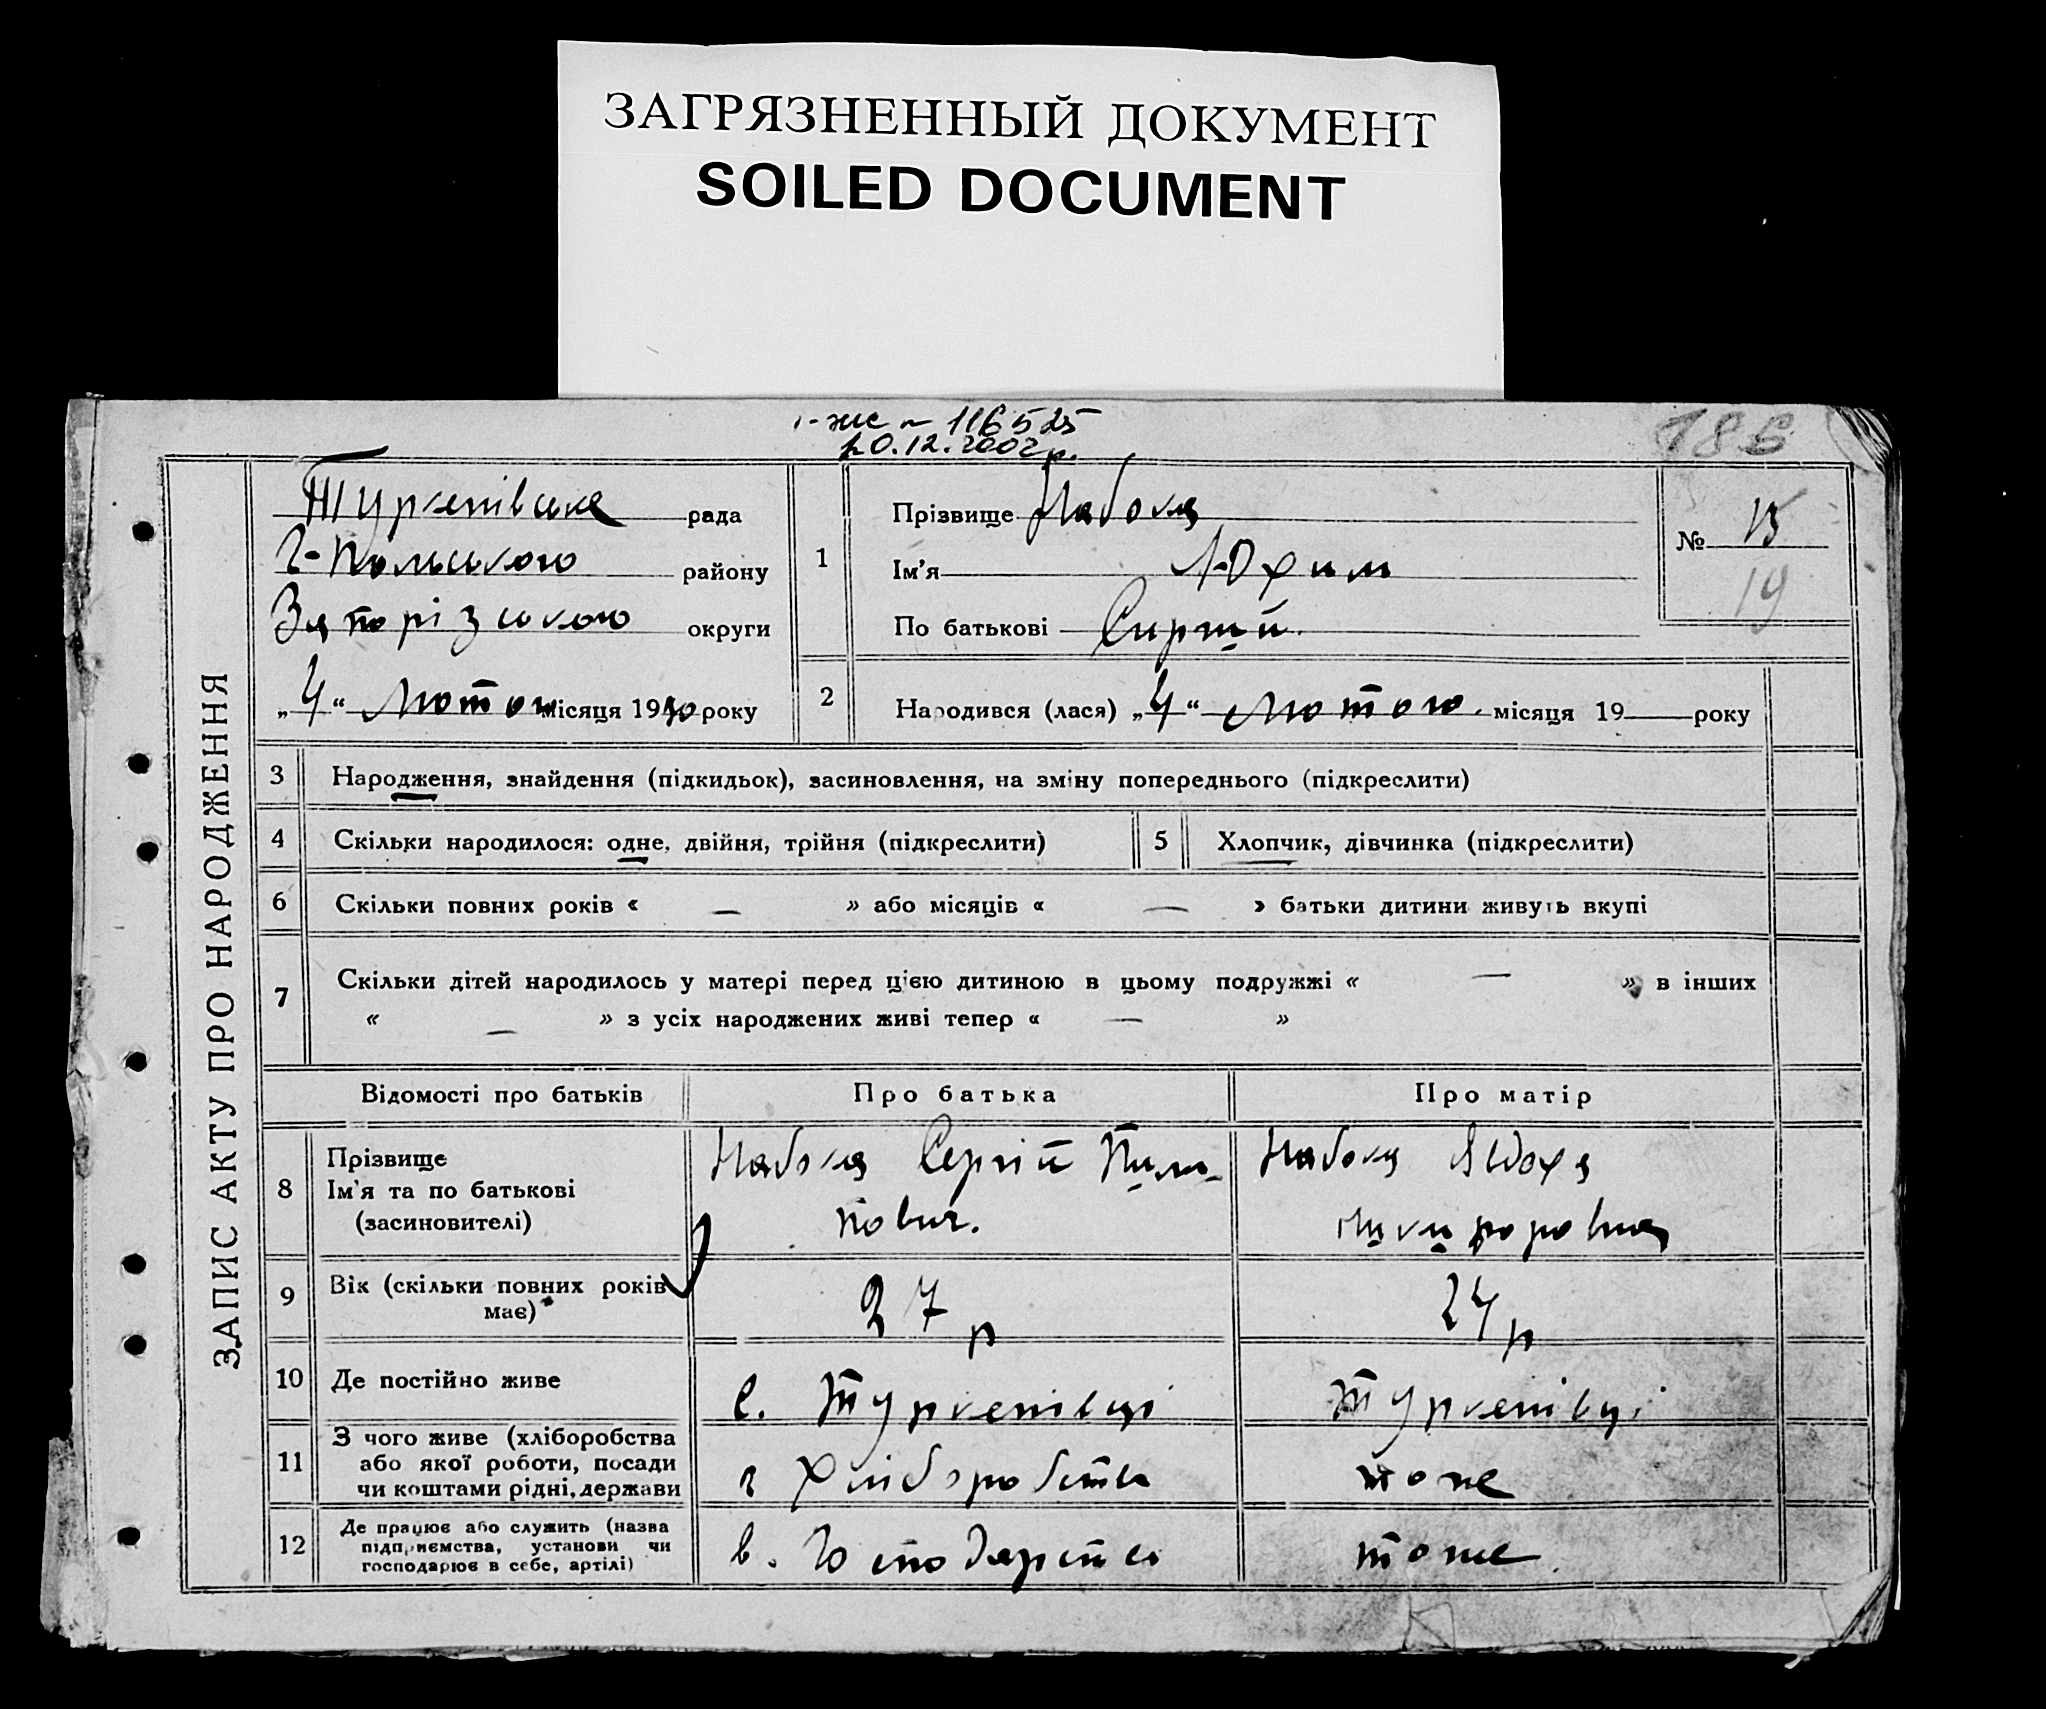 ЗАГРЯЗНЕННЫЙ ДОКУМЕНТ
SOILED DOCUMENT
116525
20.12.2002 р.
186
ЗАПИС АКТУ ПРО НАРОДЖЕННЯ
Туркенівська рада
Г-Польського району
Запорізького округи
„4“ Лютого місяця 1930 року
1
Прізвище Набока
Ім'я Юхим
По батькові Сиргий.
№ 13
19
2
Народився (лася) „4“ Лютого. місяця 19 року
3 Народження, знайдення (підкидьок), засиновлення, на зміну попереднього (підкреслити)
4 Скільки народилося: одне, двійня, трійня (підкреслити) 5 Хлопчик, дівчинка (підкреслити)
6 Скільки повних років « — » або місяців « — » батьки дитини живуть вкупі
7 Скільки дітей народилось у матері перед цією дитиною в цьому подружжі « — » в інших
« — » з усіх народжених живі тепер « — »
Відомості про батьків Про батька Про матір
8 Прізвище
Ім'я та по батькові
(засиновителі)
Набока Сергій Пили-
пович.
Набока Явдоха
Никифоровна
9 Вік (скільки повних років
має)
27 р
24 р
10 Де постійно живе с. Туркенівці Туркенівці
11 З чого живе (хліборобства
або якої роботи, посади
чи коштами рідні, держави
з Хліборобства
тоже
12 Де працює або служить (назва
підприємства, установи чи
господарює в себе, артілі)
в. Господарстві
тоже